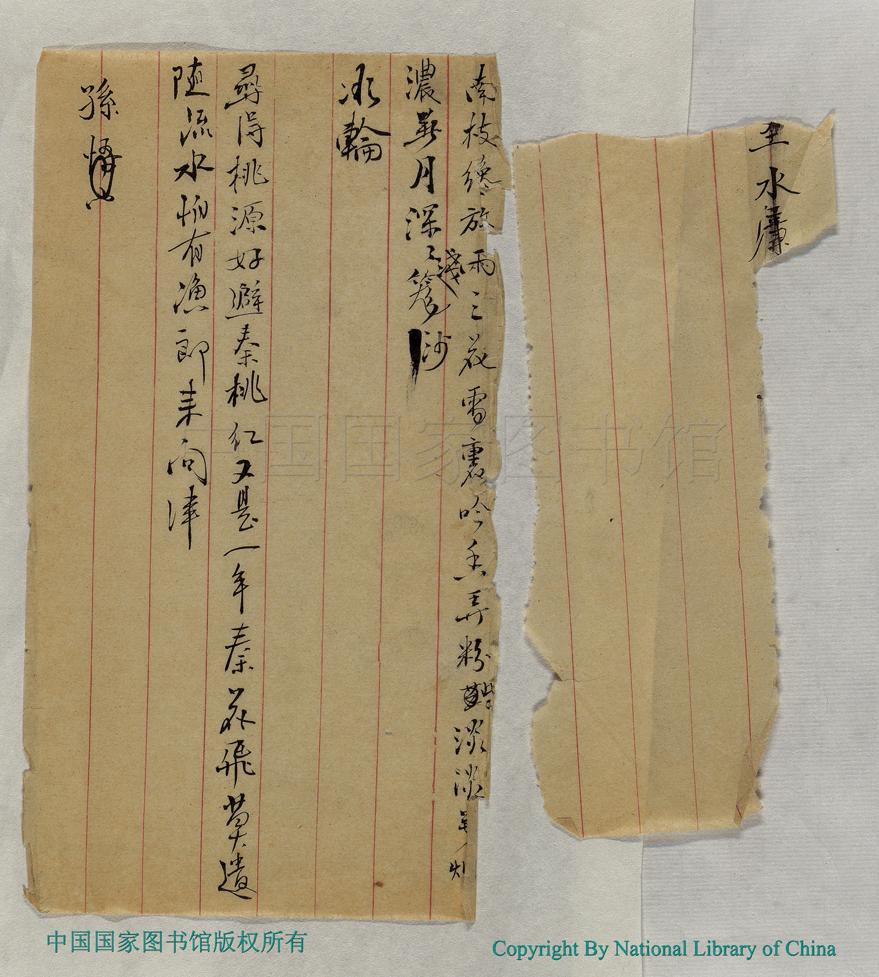 水簾
南枝纔放兩三花雪裏吟香弄粉些淡淡著烟
濃著月深〻籠淺沙
冰輪
尋得桃源好避秦桃紅又是一年秦花飛莫遣
随流水怕有漁郎来問津
孫悟空
中国国家图书馆
中国国家图书馆版权所有
Copyright By National Library of China